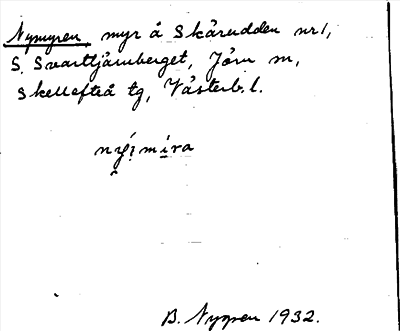 Nymyren, myr å Skårudden nr 1,
S. Svarttjärnberget, Jörn sn,
Skellefteå tg, Västerb. l.
B. Nygren 1932.